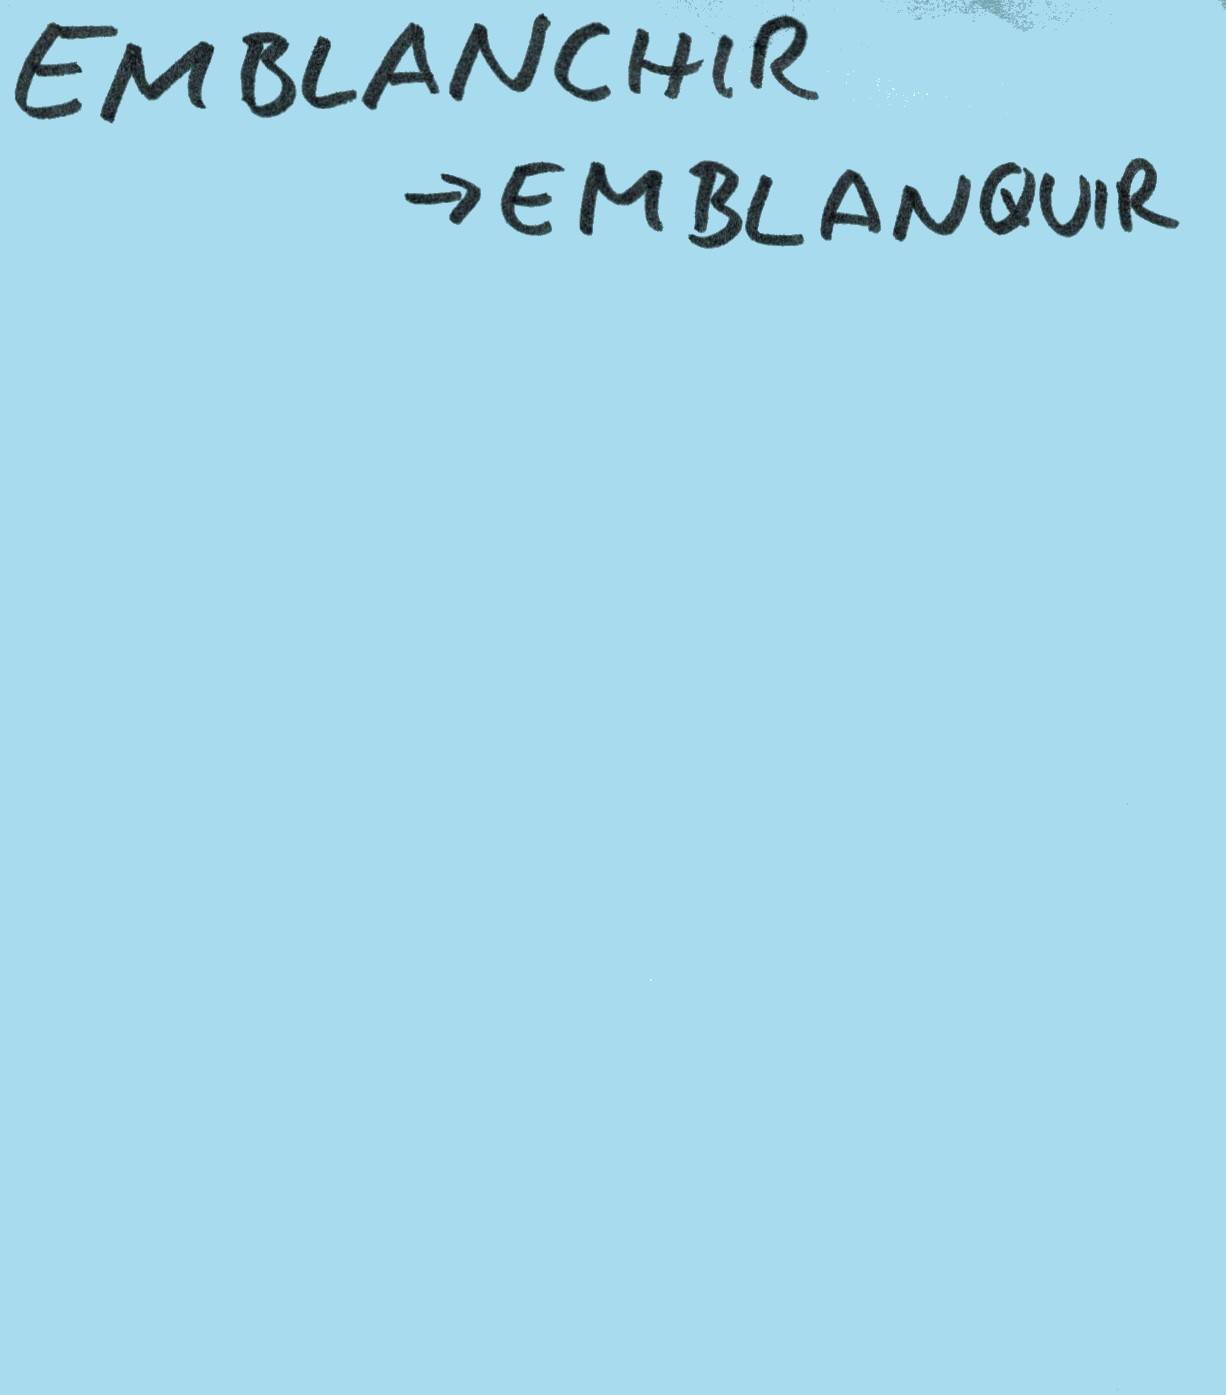 EMBLANCHIR
→ EMBLANQUIR